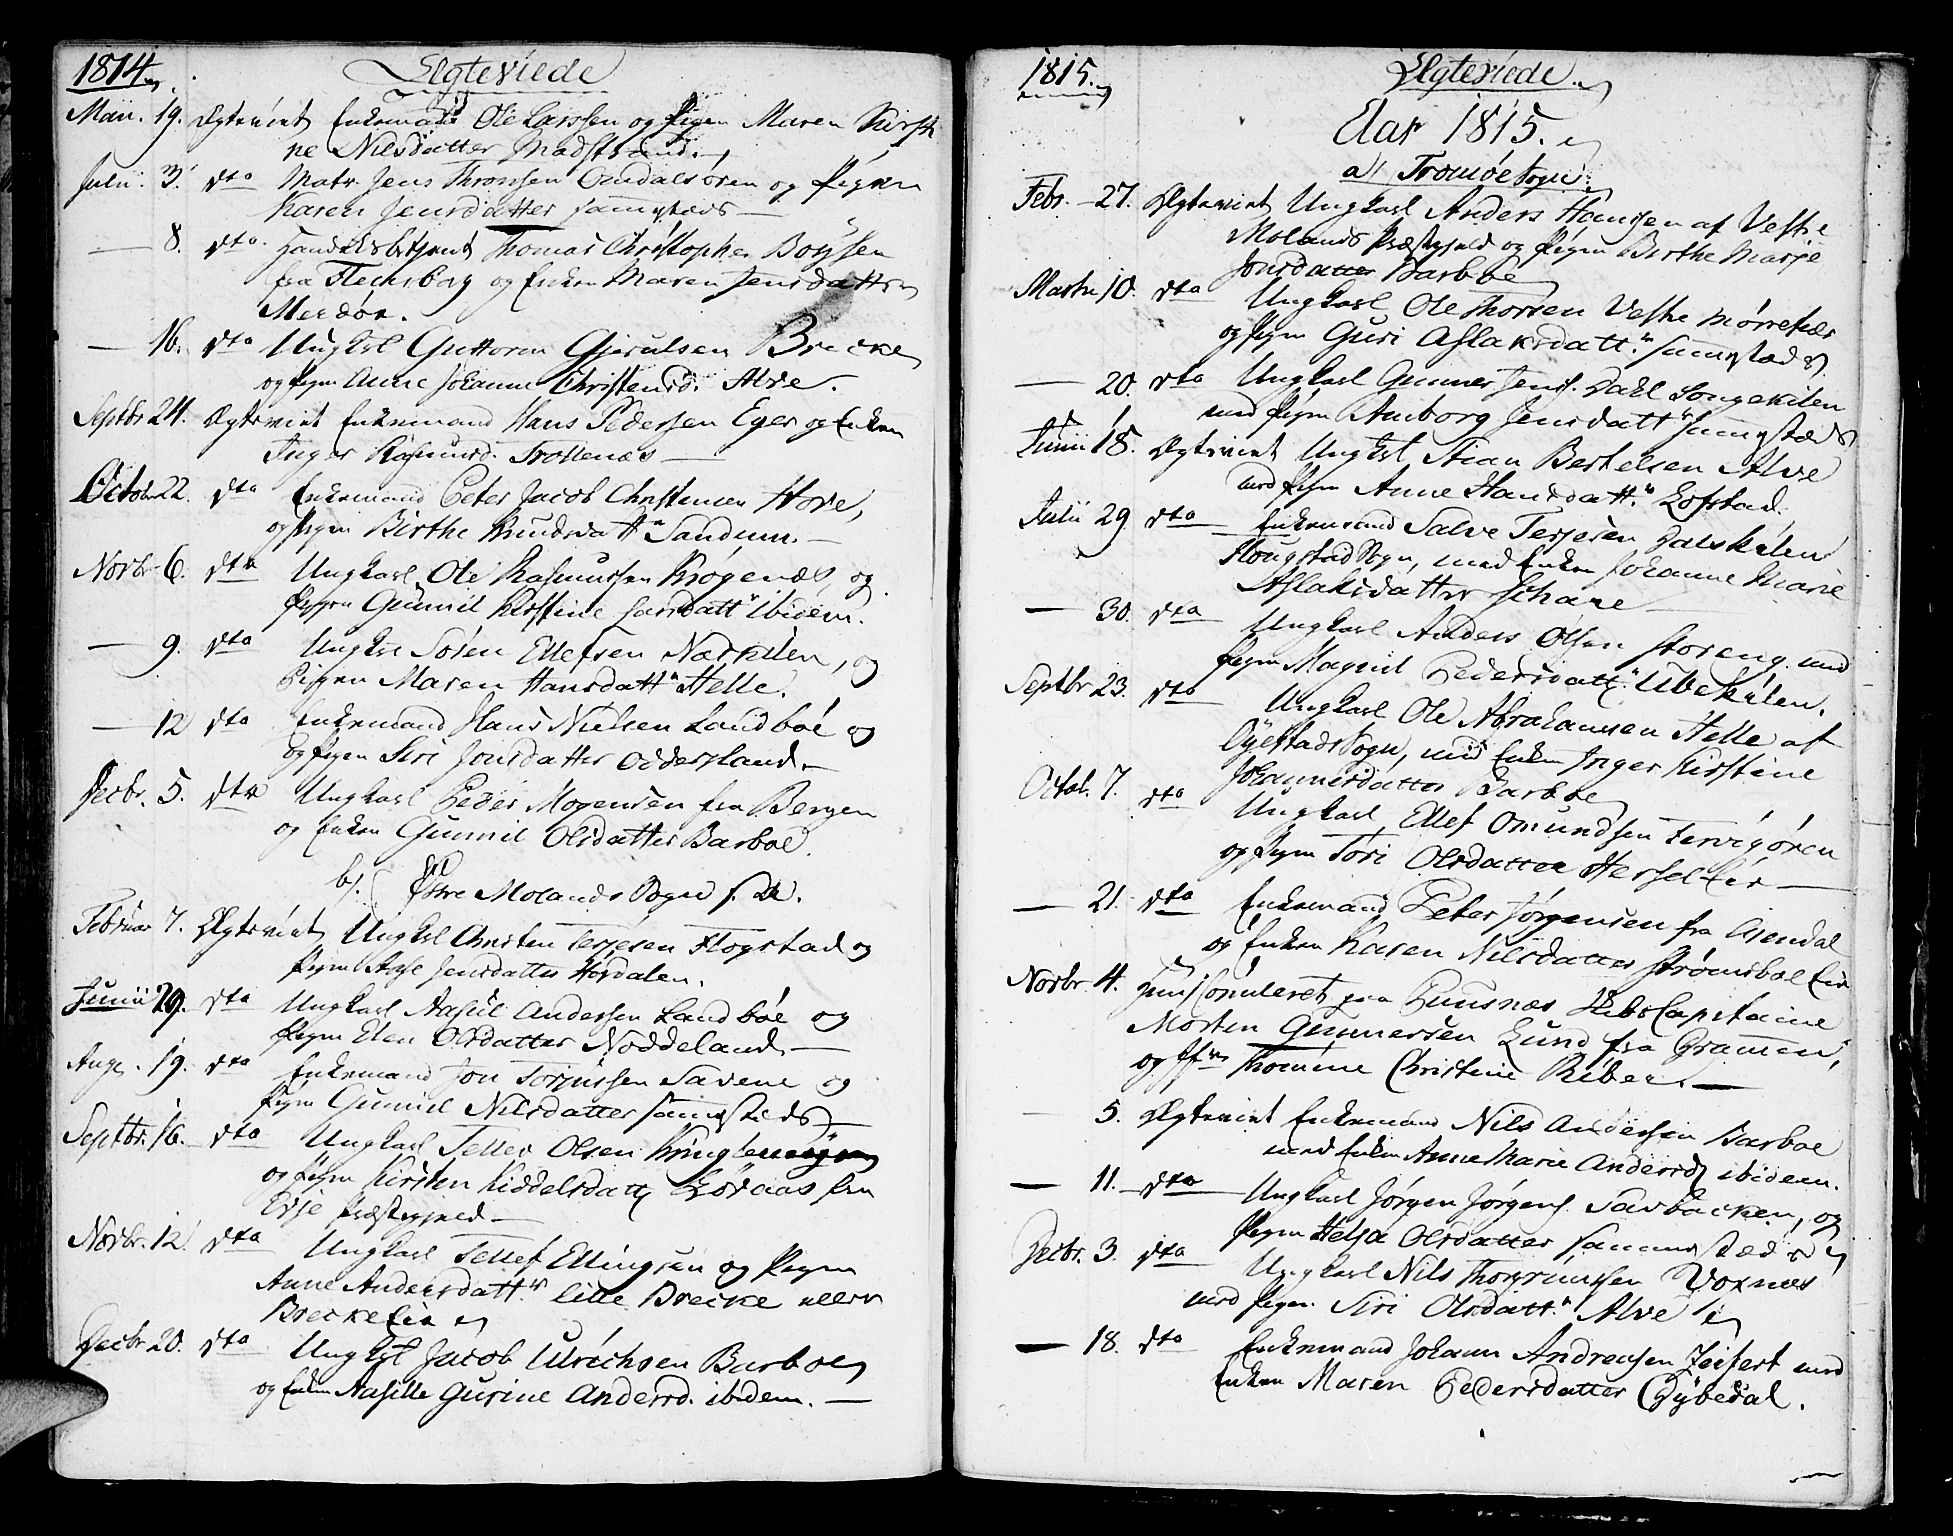 1814. Ægteviede
Maii. 19. Ægteviet Enkemand Ole Larssen og Pigen Maren Kirsti
ne Nilsdatter Madstrand.
Julii. 3. dto Matr. Jens Thronsen Omdalsøren og Pigen
Karen Jensdatter sammesteds —
— 8. dto. Handelsbetjent Thomas Christopher Boysen
fra Flensborg og Enken Maren Jensdatter
Merdøe.
— 16. dto Ungkrl Guttorm Gjerulsen Brecke
og Pigen Anne Johanne Christensd. Alve.
Septbr 24. Ægteviet Enkemand Hans Pedersen Eger og Enken
Inger Rasmusd. Trollenæs —
Octob. 22. dto Enkemand Peter Jacob Christensen Hove,
og Pigen Birthe Knudsdatt:r Sandum. —
Novbr 6. dto Ungkarl Ole Rasmussen Krøgenæs, og
Pigen Gunnil Kirstine Larsdatt:r ibidem.
— 9. dto Ungkrl Søren Ellefsen Næskilen, og
Pigen Maren Hansdatt:r Helle.
— 12 dto Enkemand Hans Nielsen Landbøe og
og Pigen Siri Jonsdatter Oddersland. —
Decbr. 5. dto Ungkarl Peder Mogensen fra Bergen
og Enken Gunnil Olsdatter Barboe.
b). Østre Molands Sogn
Februar 7. Ægteviet Ungkrl Christen Terjesen Flogstad og
Pigen Aase Jensdatter Hørdalen.
Junii 29. dto Ungkarl Aasul Andersen Landbøe og
Pigen Elen Olsdatter Noddeland. —
Aug. 19. dto Enkemand Jon Torjussen Savene og
Pigen Gunnil Nilsdatter sammesteds —
Septbr. 16. dto Ungkarl Tellev Olsen
og Pigen Kirsten Kiddelsdatt fra
Evje Præstegjeld —
Novbr. 12. dto Ungkarl Tellef Ellingsen og Pigen
Anne Andersdatt:r lille Brecke eller
Breckeeie
Decbr 20. dto Ungkrl Jacob Ulrichsen Barboe
og Enken Aasille Gurine Andersd. ibidem. —
1815. Ægteviede.
Aar 1815.
a) Tromøe Sogn.
Febr. 27. Ægteviet Ungkarl Anders Hansen af Vestre
Molands Præstegjeld og Pigen Birthe Marje
Jonsdatter Barboe
Martii 10. dto Ungkarl Ole Thorsen Vestre Mørrefiær
og Pigen Guri Aslaksdatt:r sammesteds
— 20. dto Ungkarl Gunner Jens. Dahl Songekilen
med Pigen Anborg Jensdatt:r sammesteds
Junii 18. Ægteviet Ungkrl Stian Bertelsen Alve
med Pigen Anne Hansdatt:r Lofstad.
Julii 29 dto Enkemand Salve Terjesen Dalskilen
Flougstad Sogn, med Enken Johanne Marie
Aslaksdatter Schare
— 30. dto Ungkarl Anders Olsen Storeng med
Pigen Magnil Pedersdatt:r Ubekilen.
Septbr 23. dto Ungkarl Ole Abrahamsen Helle af
Øyestads Sogn, med Enken Inger Kirstine
Johannesdatter Barboe
Octob. 7. dto Ungkarl Ellef Omundsen Tervigøren
og Pigen Tori Olsdatter Herseleie —
— 21. dto Enkemand Peter Jørgensen fra Arendal
og Enken Karen Nilsdatter Strømsboeeie
Novbr 4. paa Puusnæs Skibs Capitaine
Morten Gunnersen Lund fra Drammen,
og Thomine Christine Riber. —
5. Ægteviet Enkemand Nils Andersen Barboe
med Enken Anne Marie Andersd ibidem.
— 11. dto Ungkarl Jørgen Jørgens. Savbacken, og
Pigen Helja Olsdatter sammesteds
Decbr. 3. dto Ungkarl Nils Thorgrimsen Voxnæs
med Pigen Siri Olsdatt:r Alve
— 18. dto Enkemand Johann Andreasen Zeifert med
Enken Maren Pedersdatter Gybedal.